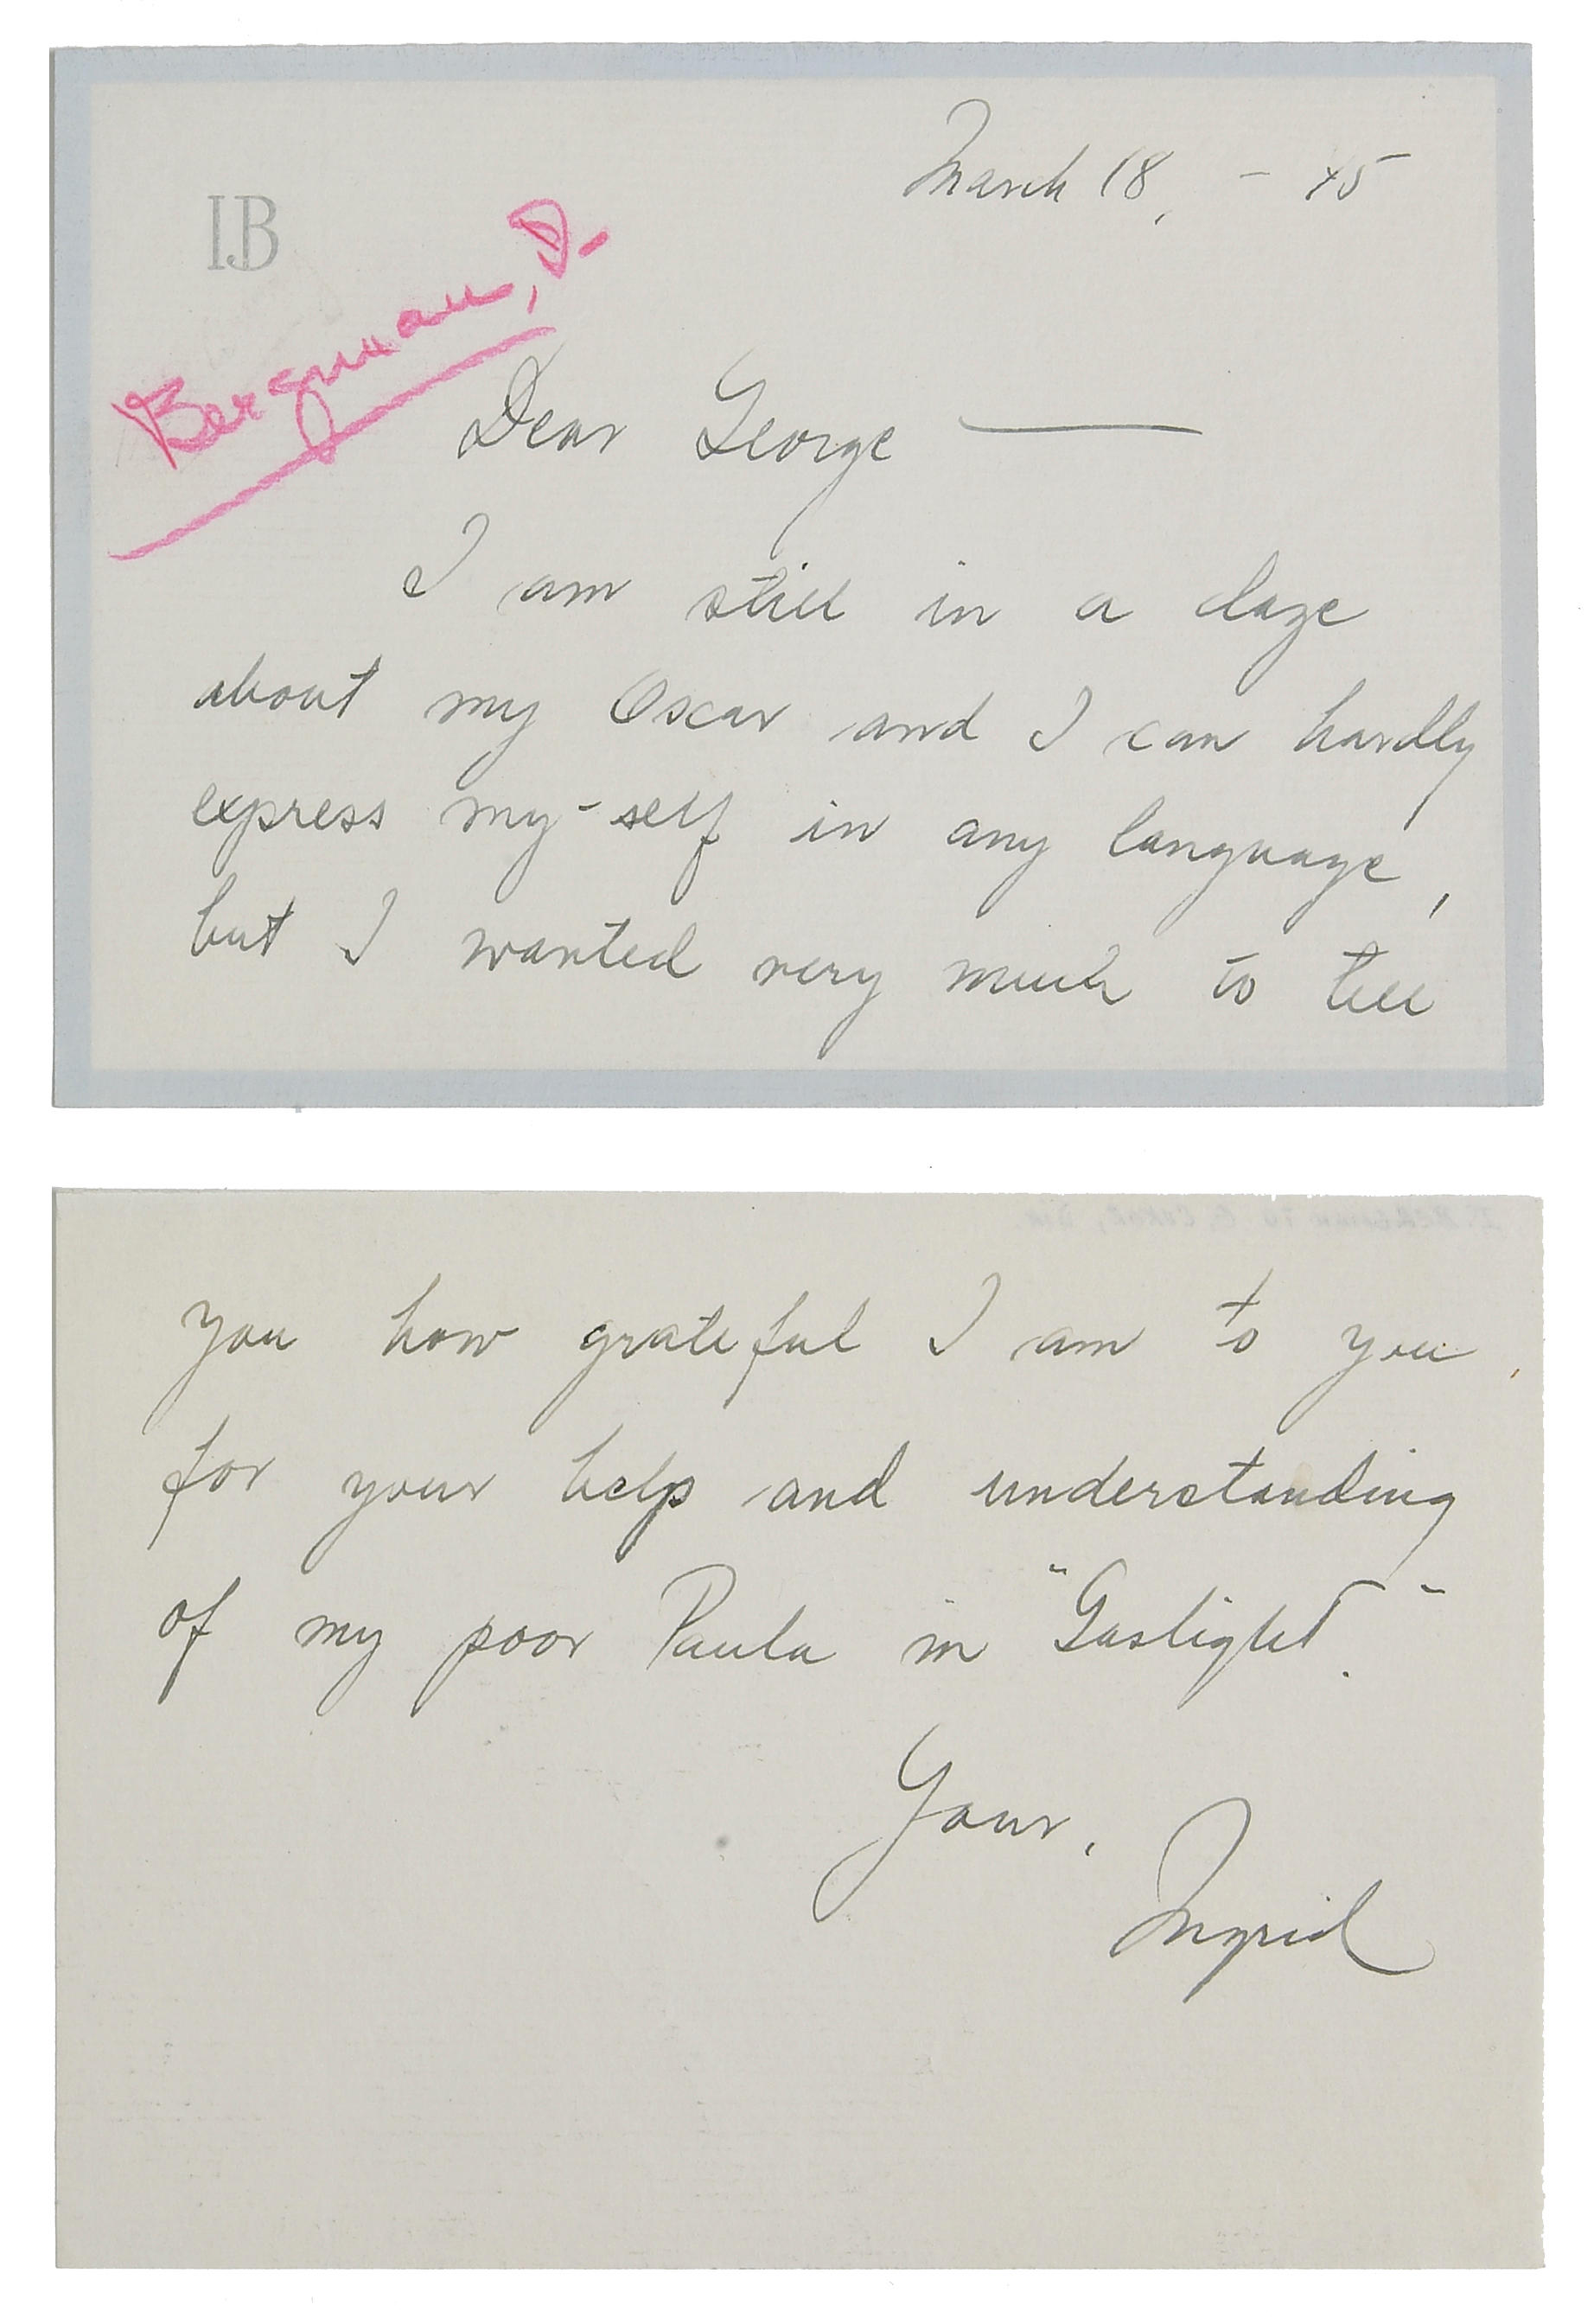 March 18, - 45
IB
Bergman, I.
Dear George —
I am still in a daze
about my Oscar and I can hardly
express my-self in any language,
but I wanted very much to tell
you how grateful I am to you
for your help and understanding
of my poor Paula in "Gaslight".
Your,
Ingrid